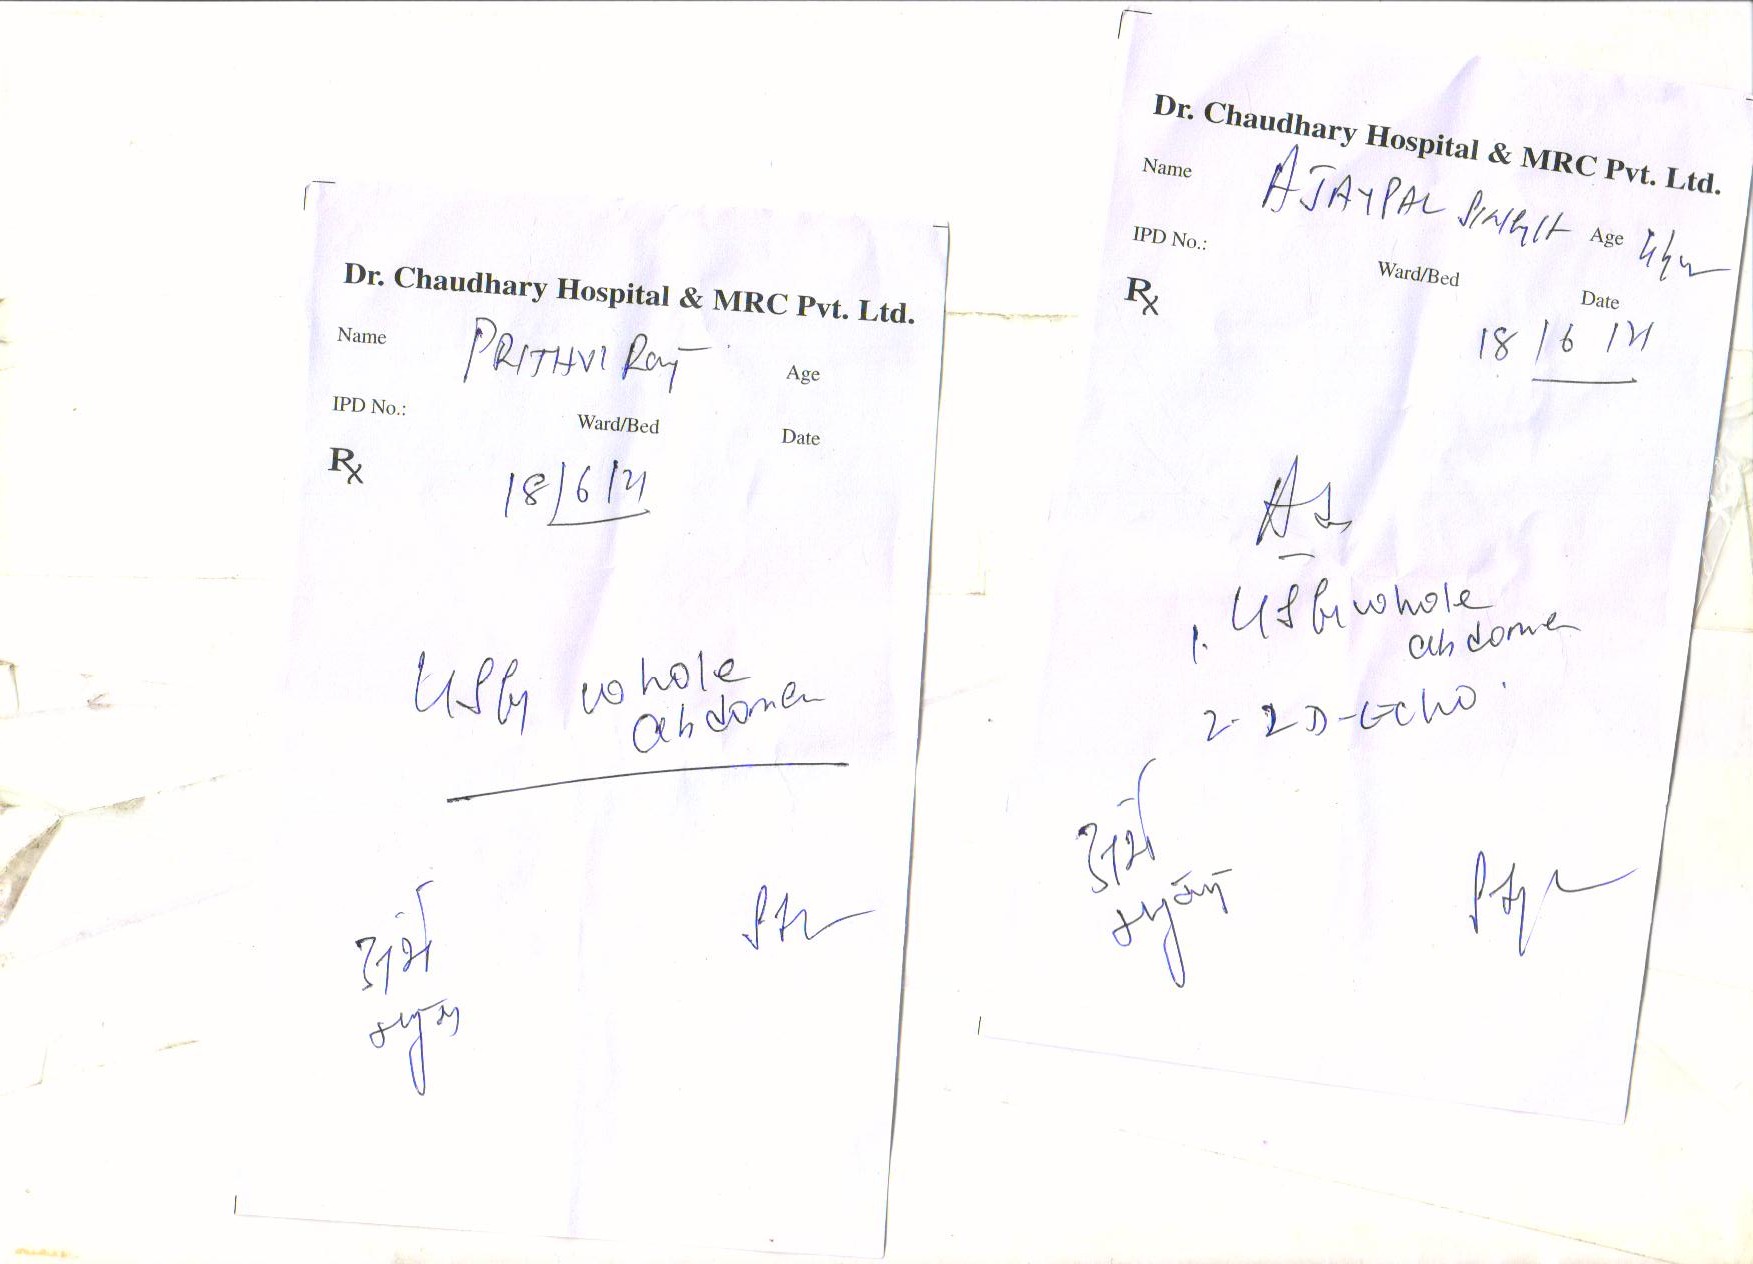 Dr. Chaudhary Hospital & MRC Pvt. Ltd.
Name PRITHVI Raj Age
IPD No.: Ward/Bed Date
Rx
18/6/21
USG whole
abdomen
Dr. Chaudhary Hospital & MRC Pvt. Ltd.
Name AJAYPAL SINGH Age
IPD No.: Ward/Bed Date
Rx
18/6/21
1. USG whole
abdomen
2. 2D-Echo